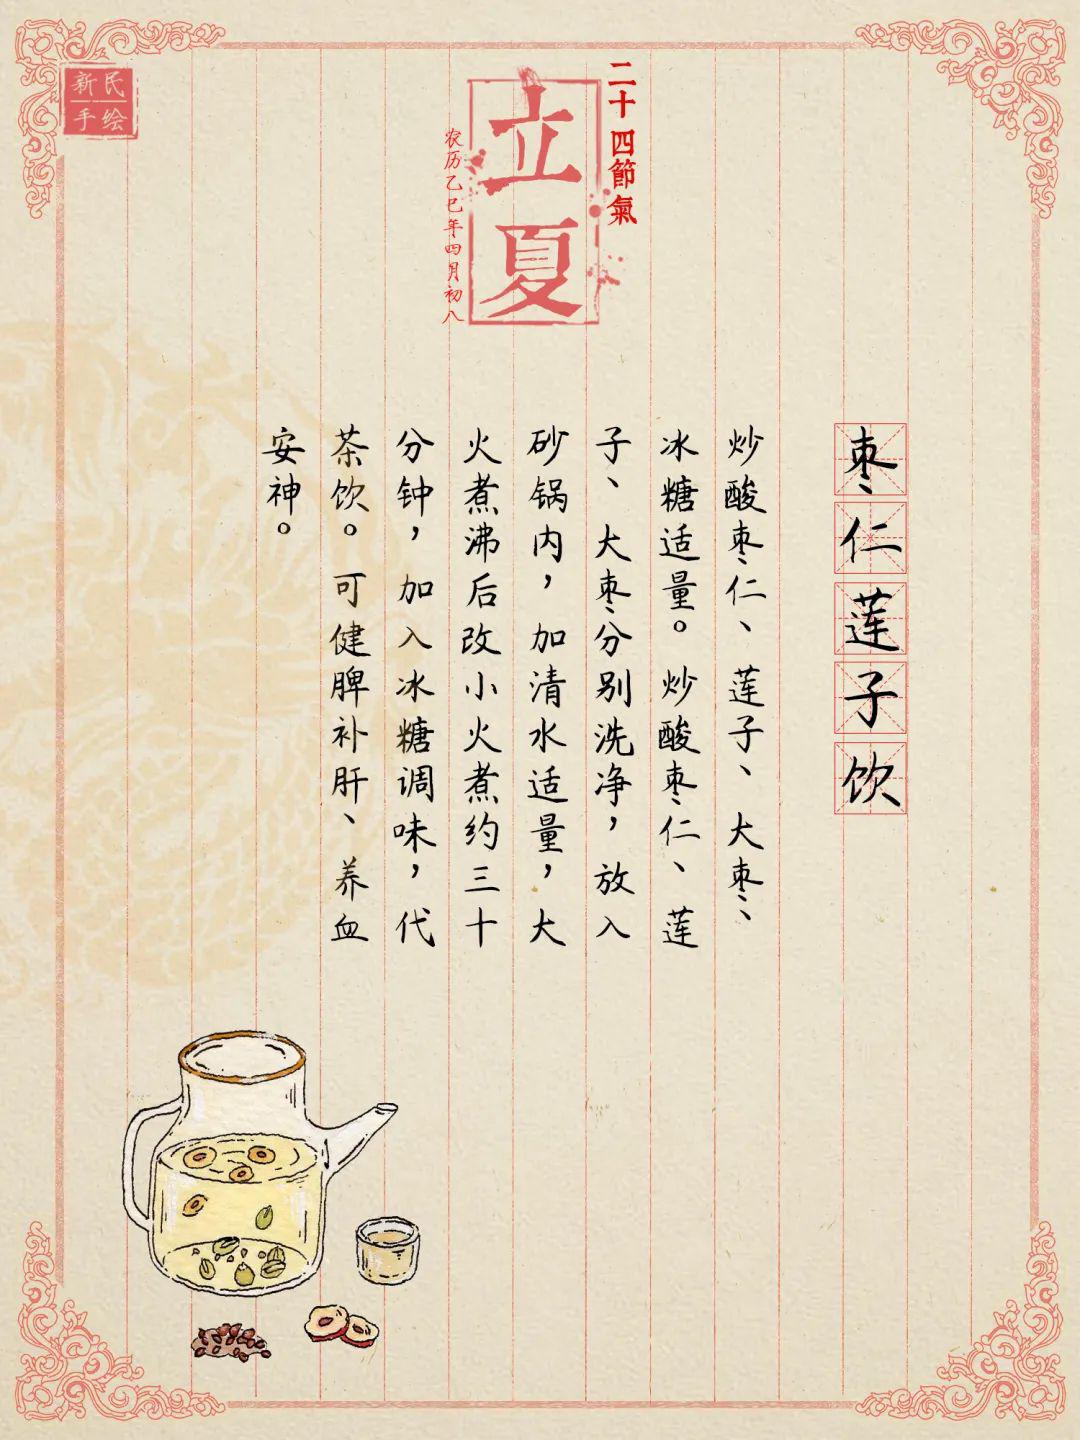 新民
手绘
二十四節氣
立夏
农历乙巳年四月初八
枣仁莲子饮
炒酸枣仁、莲子、大枣、
冰糖适量。炒酸枣仁、莲
子、大枣分别洗净，放入
砂锅内，加清水适量，大
火煮沸后改小火煮约三十
分钟，加入冰糖调味，代
茶饮。可健脾补肝、养血
安神。